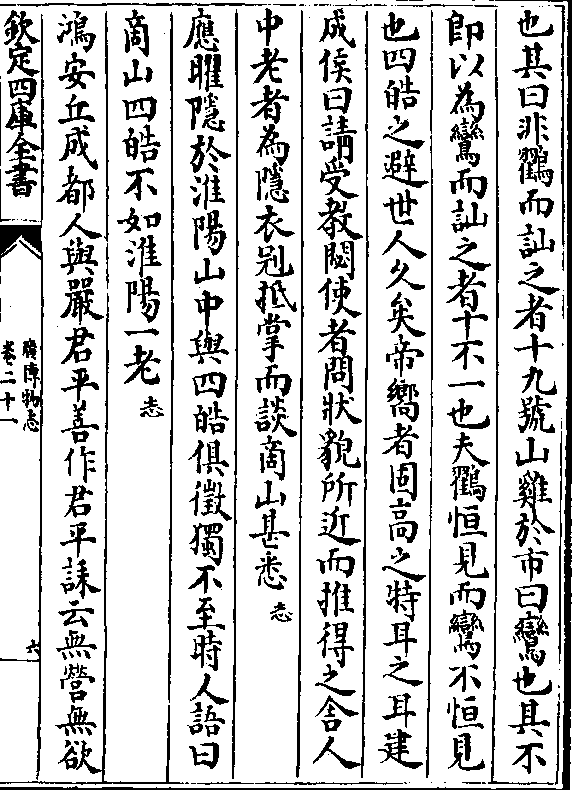 也其曰非鸛而訕之者十九號山雞於市曰鸞也其不
即以為鸞而訕之者十不一也夫鸛恒見而鸞不恒見
也四皓之避世人久矣帝嚮者固高之特耳之耳建
成侯曰請受教閟使者問狀貌所近而推得之舍人
中老者為隱衣剡抵掌而談商山甚悉 志
應曜隱於淮陽山中與四皓俱徵獨不至時人語曰
商山四皓不如淮陽一老 志
鴻安丘成都人與嚴君平善作君平誄云無營無欲
欽定四庫全書
廣博物志
卷二十一
六